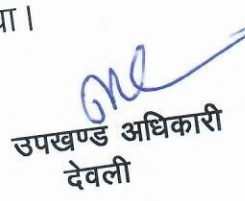 या।
उपखण्ड अधिकारी
देवली